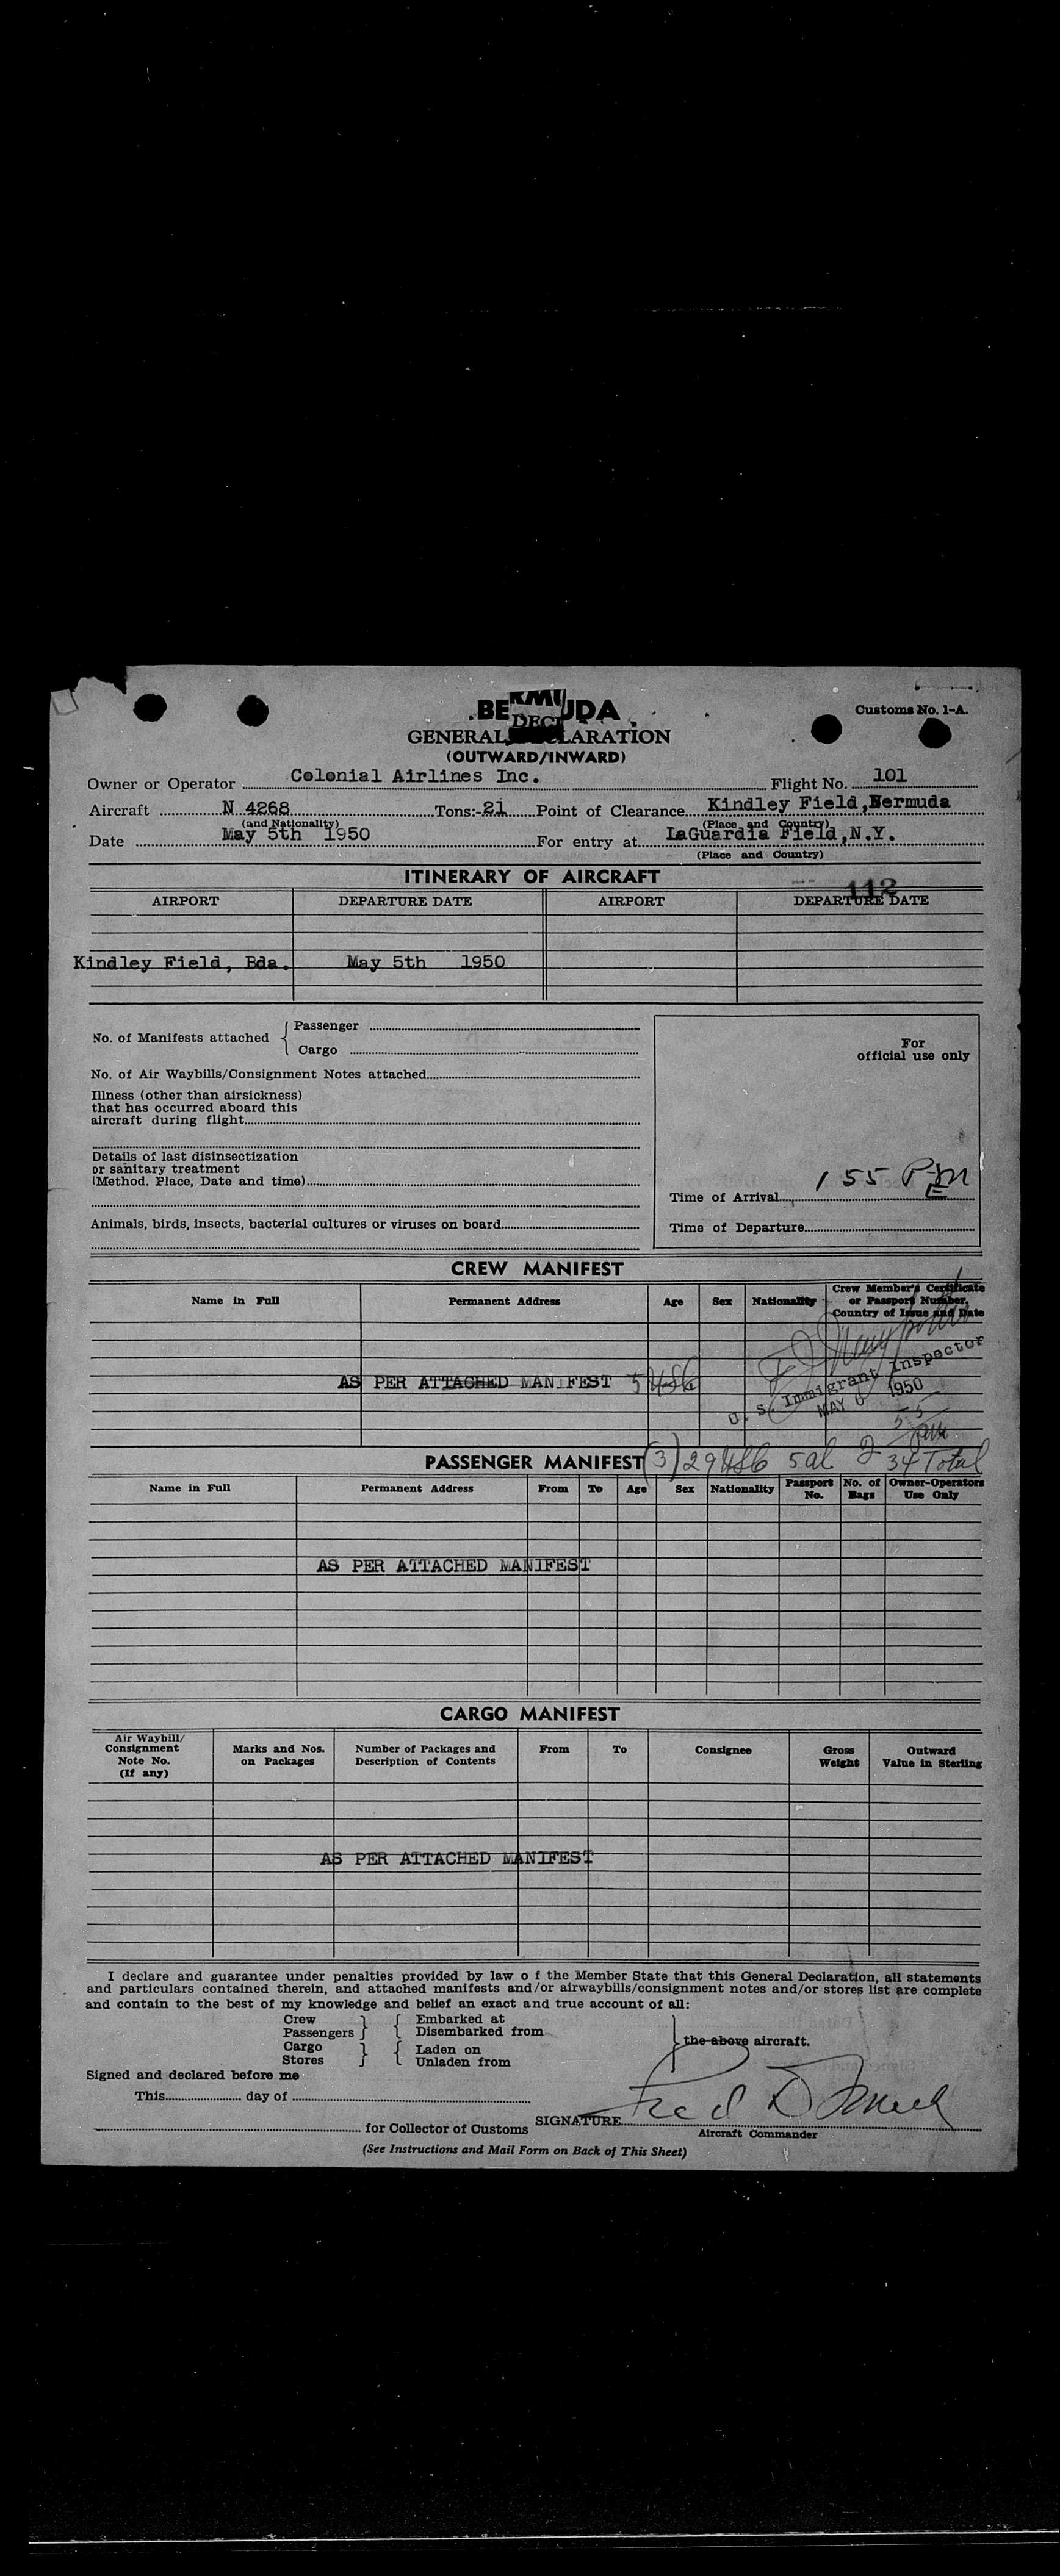 BERMUDA
Customs No. 1-A.
GENERAL DECLARATION
(OUTWARD/INWARD)
Owner or Operator Colonial Airlines Inc. Flight No. 101
Aircraft N 4268 Tons:-21 Point of Clearance Kindley Field,Bermuda
(and Nationality) (Place and Country)
Date May 5th 1950 For entry at LaGuardia Field,N.Y.
(Place and Country)
ITINERARY OF AIRCRAFT
112
AIRPORT DEPARTURE DATE AIRPORT DEPARTURE DATE
Kindley Field, Bda. May 5th 1950
No. of Manifests attached { Passenger
Cargo
For
official use only
No. of Air Waybills/Consignment Notes attached
Illness (other than airsickness)
that has occurred aboard this
aircraft during flight
Details of last disinsectization
or sanitary treatment
(Method. Place, Date and time)
Time of Arrival 1 55 PM
E
Animals, birds, insects, bacterial cultures or viruses on board
Time of Departure
CREW MANIFEST
Name in Full Permanent Address Age Sex Nationality Crew Member's Certificate
or Passport Number,
Country of Issue and Date
AS PER ATTACHED MANIFEST
U. S. Immigrant Inspector
MAY 1950
PASSENGER MANIFEST (3) 29 5 al 34 Total
Name in Full Permanent Address From To Age Sex Nationality Passport No. No. of Bags Owner-Operators Use Only
AS PER ATTACHED MANIFEST
CARGO MANIFEST
Air Waybill/
Consignment
Note No.
(If any)
Marks and Nos.
on Packages
Number of Packages and
Description of Contents
From To Consignee
Gross
Weight
Outward
Value in Sterling
AS PER ATTACHED MANIFEST
I declare and guarantee under penalties provided by law o f the Member State that this General Declaration, all statements
and particulars contained therein, and attached manifests and/or airwaybills/consignment notes and/or stores list are complete
and contain to the best of my knowledge and belief an exact and true account of all:
Crew } { Embarked at
Passengers } { Disembarked from
} the above aircraft.
Cargo } { Laden on
Stores } { Unladen from
Signed and declared before me
This day of
for Collector of Customs
SIGNATURE Fred
Aircraft Commander
(See Instructions and Mail Form on Back of This Sheet)